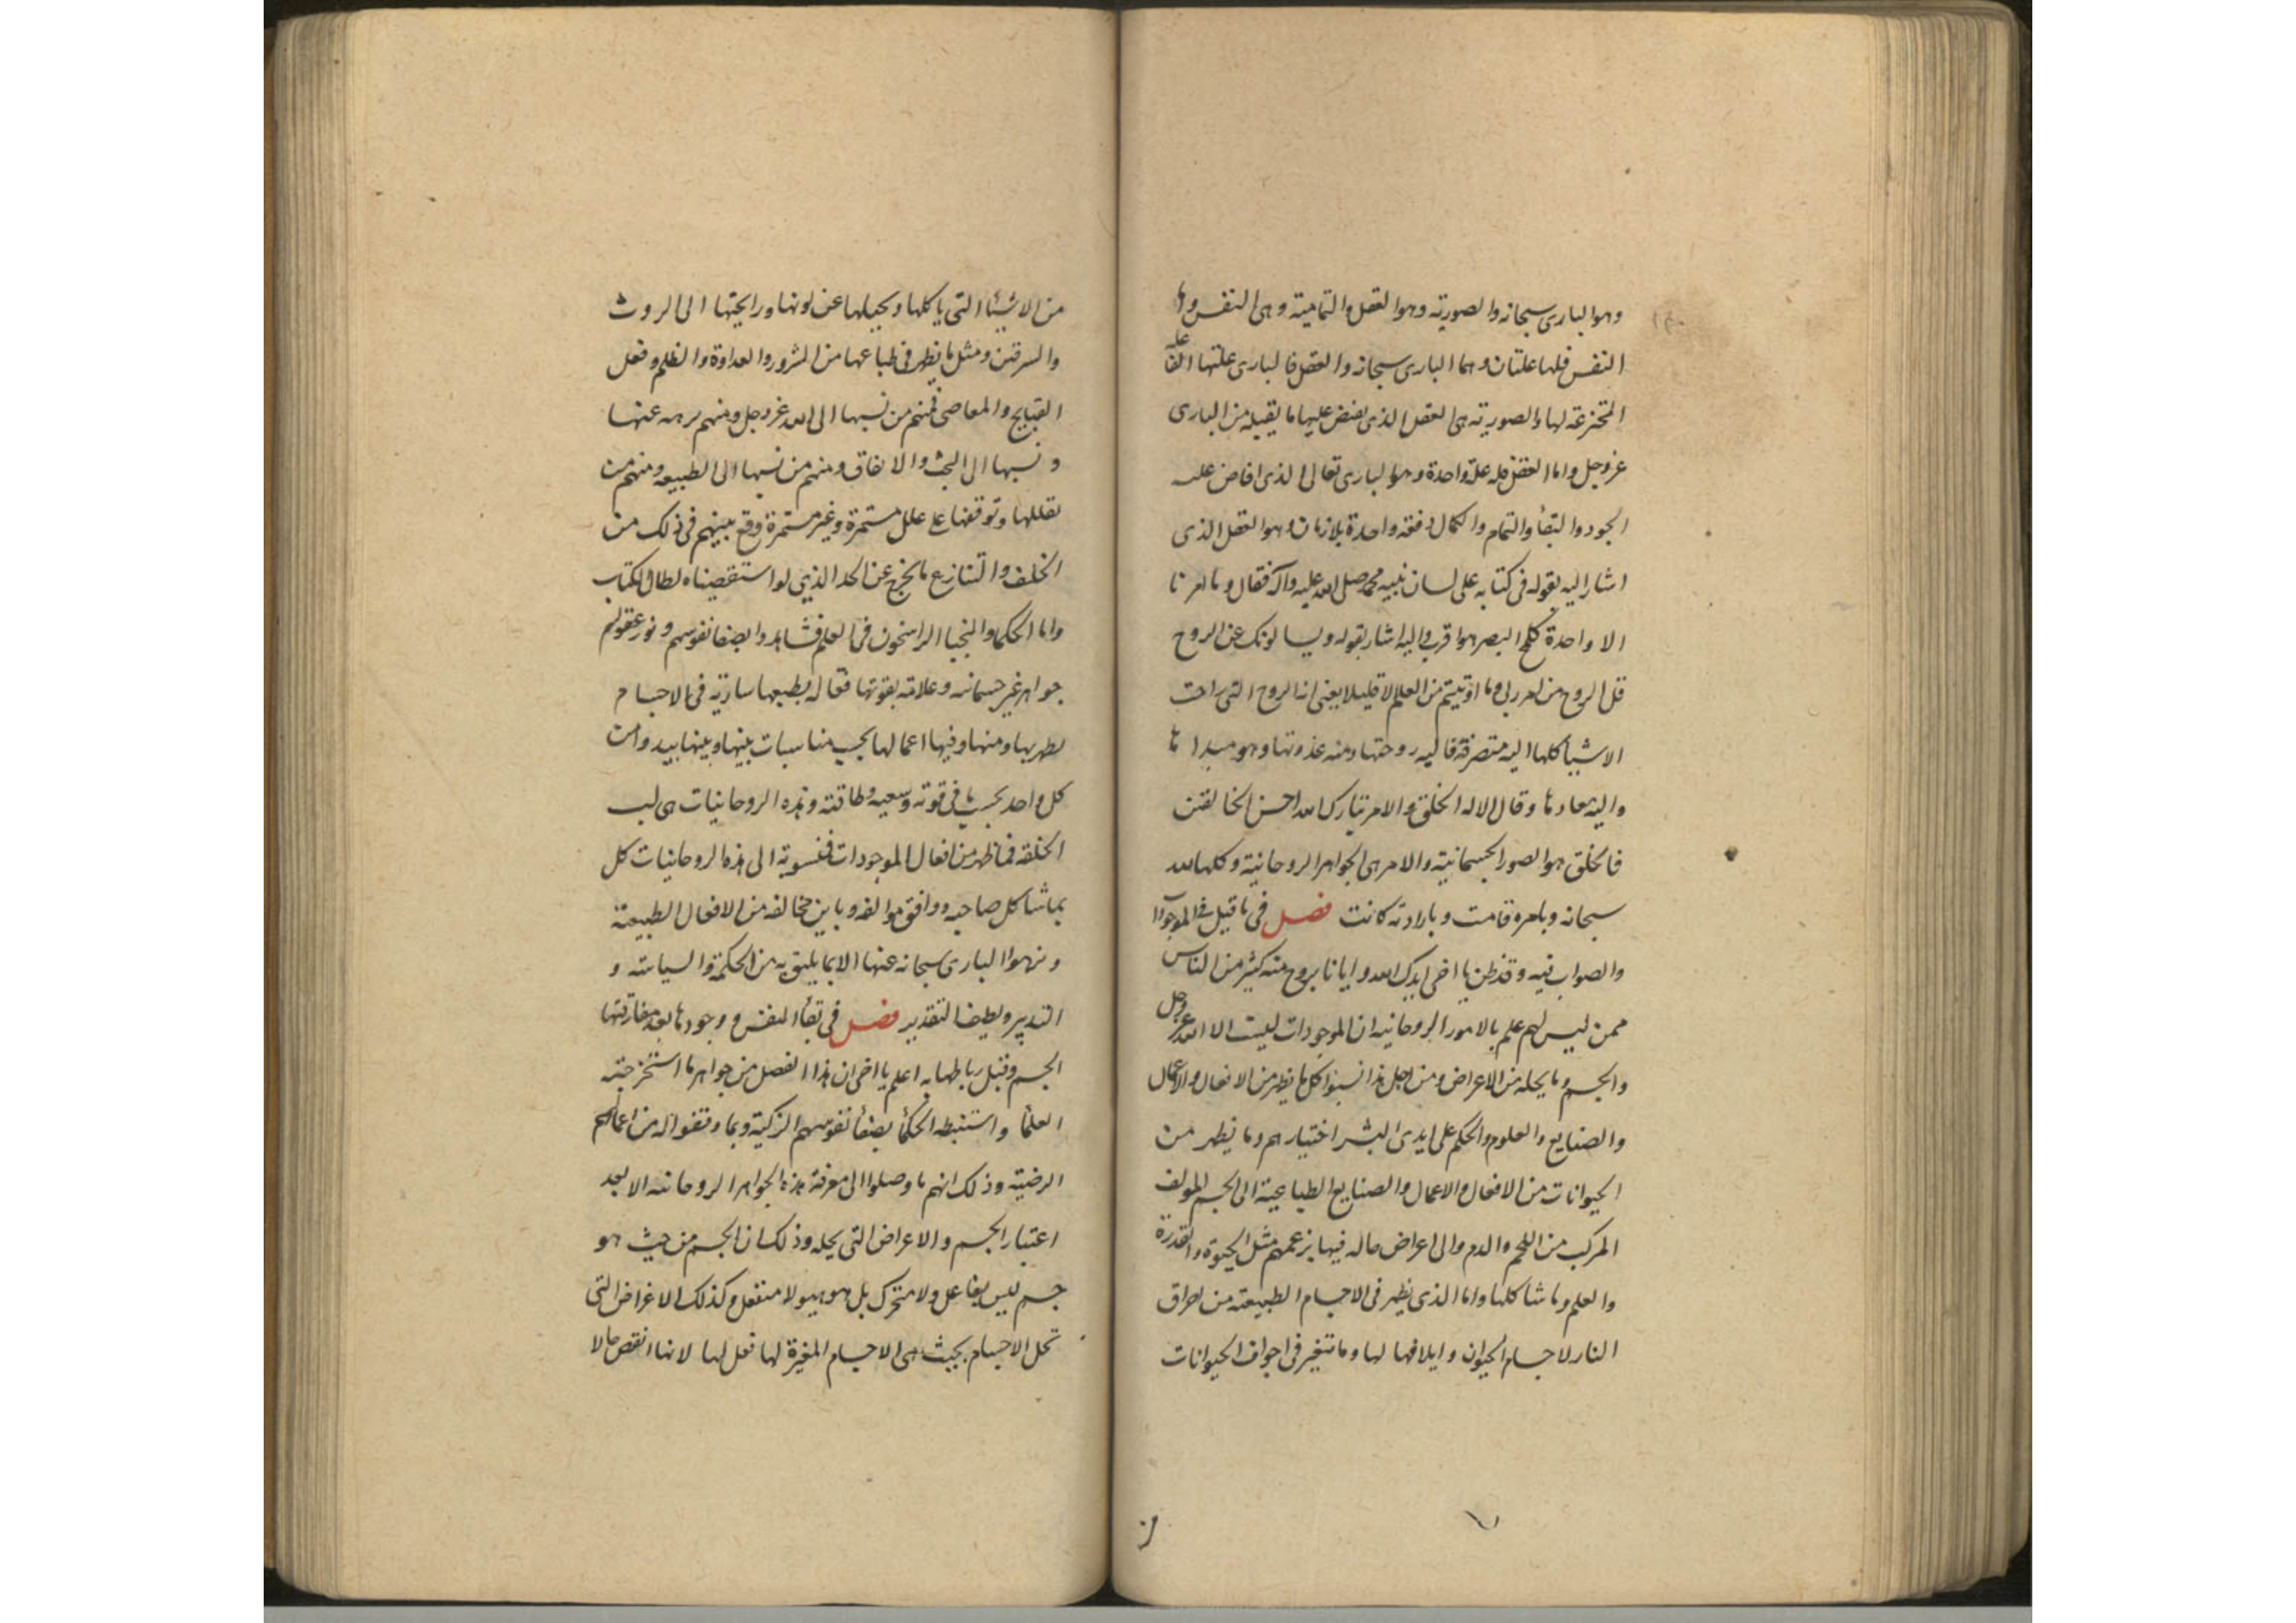 وهو الباري سبحانه والصورية وهو العقل والتمامية وهي النفس واما
النفس فلها علتان وهما الباري سبحانه والعقل فالباري علتها الفاعلة
المخترعة لها والصورية هي العقل الذي يفيض عليها ما يقبله من الباري
عز وجل واما العقل فله علة واحدة وهو الباري تعالى الذي افاض عليه
الجود والبقأ والتمام والكمال دفعة واحدة بلا زمان وهو العقل الذي
اشار اليه بقوله في كتابه على لسان نبيه محمد صلى الله عليه وآله فقال وما امرنا
الا واحدة كلمح البصر هو اقرب واليه اشار بقوله ويسألونك عن الروح
قل الروح من امر ربي وما اوتيتم من العلم الا قليلا يعني ان الروح التي راحت
الاشيأ كلها اليه متصرفة فاليه روحتها ومنه غدوتها وهو مبداها
واليه معادها وقال الا له الخلق والامر تبارك الله احسن الخالقين
فالخلق هو الصور الجسمانية والامر هي الجواهر الروحانية وكلها لله
سبحانه وبامره قامت وبارادته كانت فصل في ما قيل في الموجودات
والصواب فيه وقد ظن يا اخي ايدك الله وايانا بروح منه كثير من الناس
ممن ليس لهم علم بالامور الروحانية ان الموجودات ليست الا الله عز وجل
والجسم وما يحله من الاعراض ومن اجل هذا نسبوا كل ما يظهر من الافعال والاعمال
والصنايع والعلوم والحكم على ايدي البشر اختيارهم وما يظهر من
الحيوانات من الافعال والاعمال والصنايع الطباعية الى الجسم المولف
المركب من اللحم والدم والى اعراض حالة فيها بزعمهم مثل الحيوة والقدرة
والعلم وما شاكلها واما الذي يظهر في الاجسام الطبيعية من احراق
النار لاجسام الحيوان وايلافها لها وما يتغير في اجواف الحيوانات
من
من الاشيئا التي ياكلها ويحيلها عن لونها ورايحتها الى الروث
والسرقين ومثل ما يظهر في طباعها من الشرور والعداوة والظلم وفعل
القبايح والمعاصي فمنهم من نسبها الى الله عز وجل ومنهم نزهه عنها
ونسبها الى البخت والاتفاق ومنهم من نسبها الى الطبيعه ومنهم من
يعللها وتوقفها على علل مستمرة وغير مستمرة وقع بينهم في ذلك من
الخلف والتنازع ما يخرج عن الحد الذي لو استقصيناه لطال الكتاب
واما الحكما والنجبا الراسخون في العلم فشاهدوا بصفا نفوسهم ونور عقولهم
جواهر غير جسمانيه وعلامة بقوتها فعاله بطبعها سارية في الاجسام
يظهر بها ومنها وفيها اعمالها بحسب مناسبات بينها وبينها بيد وامن
كل واحد بحسب ما في قوته وسعيه وطاقته وهذه الروحانيات هي لب
الخلقه فما ظهر من افعال الموجودات فمنسوبة الى هذه الروحانيات كل
بما شاكل صاحبه ووافق موالفه وباين مخالفه من الافعال الطبيعية
ونزهوا الباري سبحانه عنها الا بما يليق به من الحكمة والسياسة و
التدبير ولطيف التقدير فصل في بقأ النفس ووجودها بعد مفارقتها
الجسم وقبل رباطها به اعلم يا اخي ان هذا الفصل من جواهر ما استخرجته
العلمأ واستنبطه الحكمأ بصفأ نفوسهم الزكية وبما وقفوا له من اعمالهم
الرضية وذلك انهم ما وصلوا الى معرفة هذه الجواهر الروحانيه الا بعد
اعتبار الجسم والاعراض التي يحله وذلك ان الجسم من حيث هو
جسم ليس بفاعل ولا متحرك بل هو هيولا منفعل وكذلك الاعراض التي
تحل الاجسام بحيث هي الاجسام المغيرة لها فعل لها لانها انقص حالا